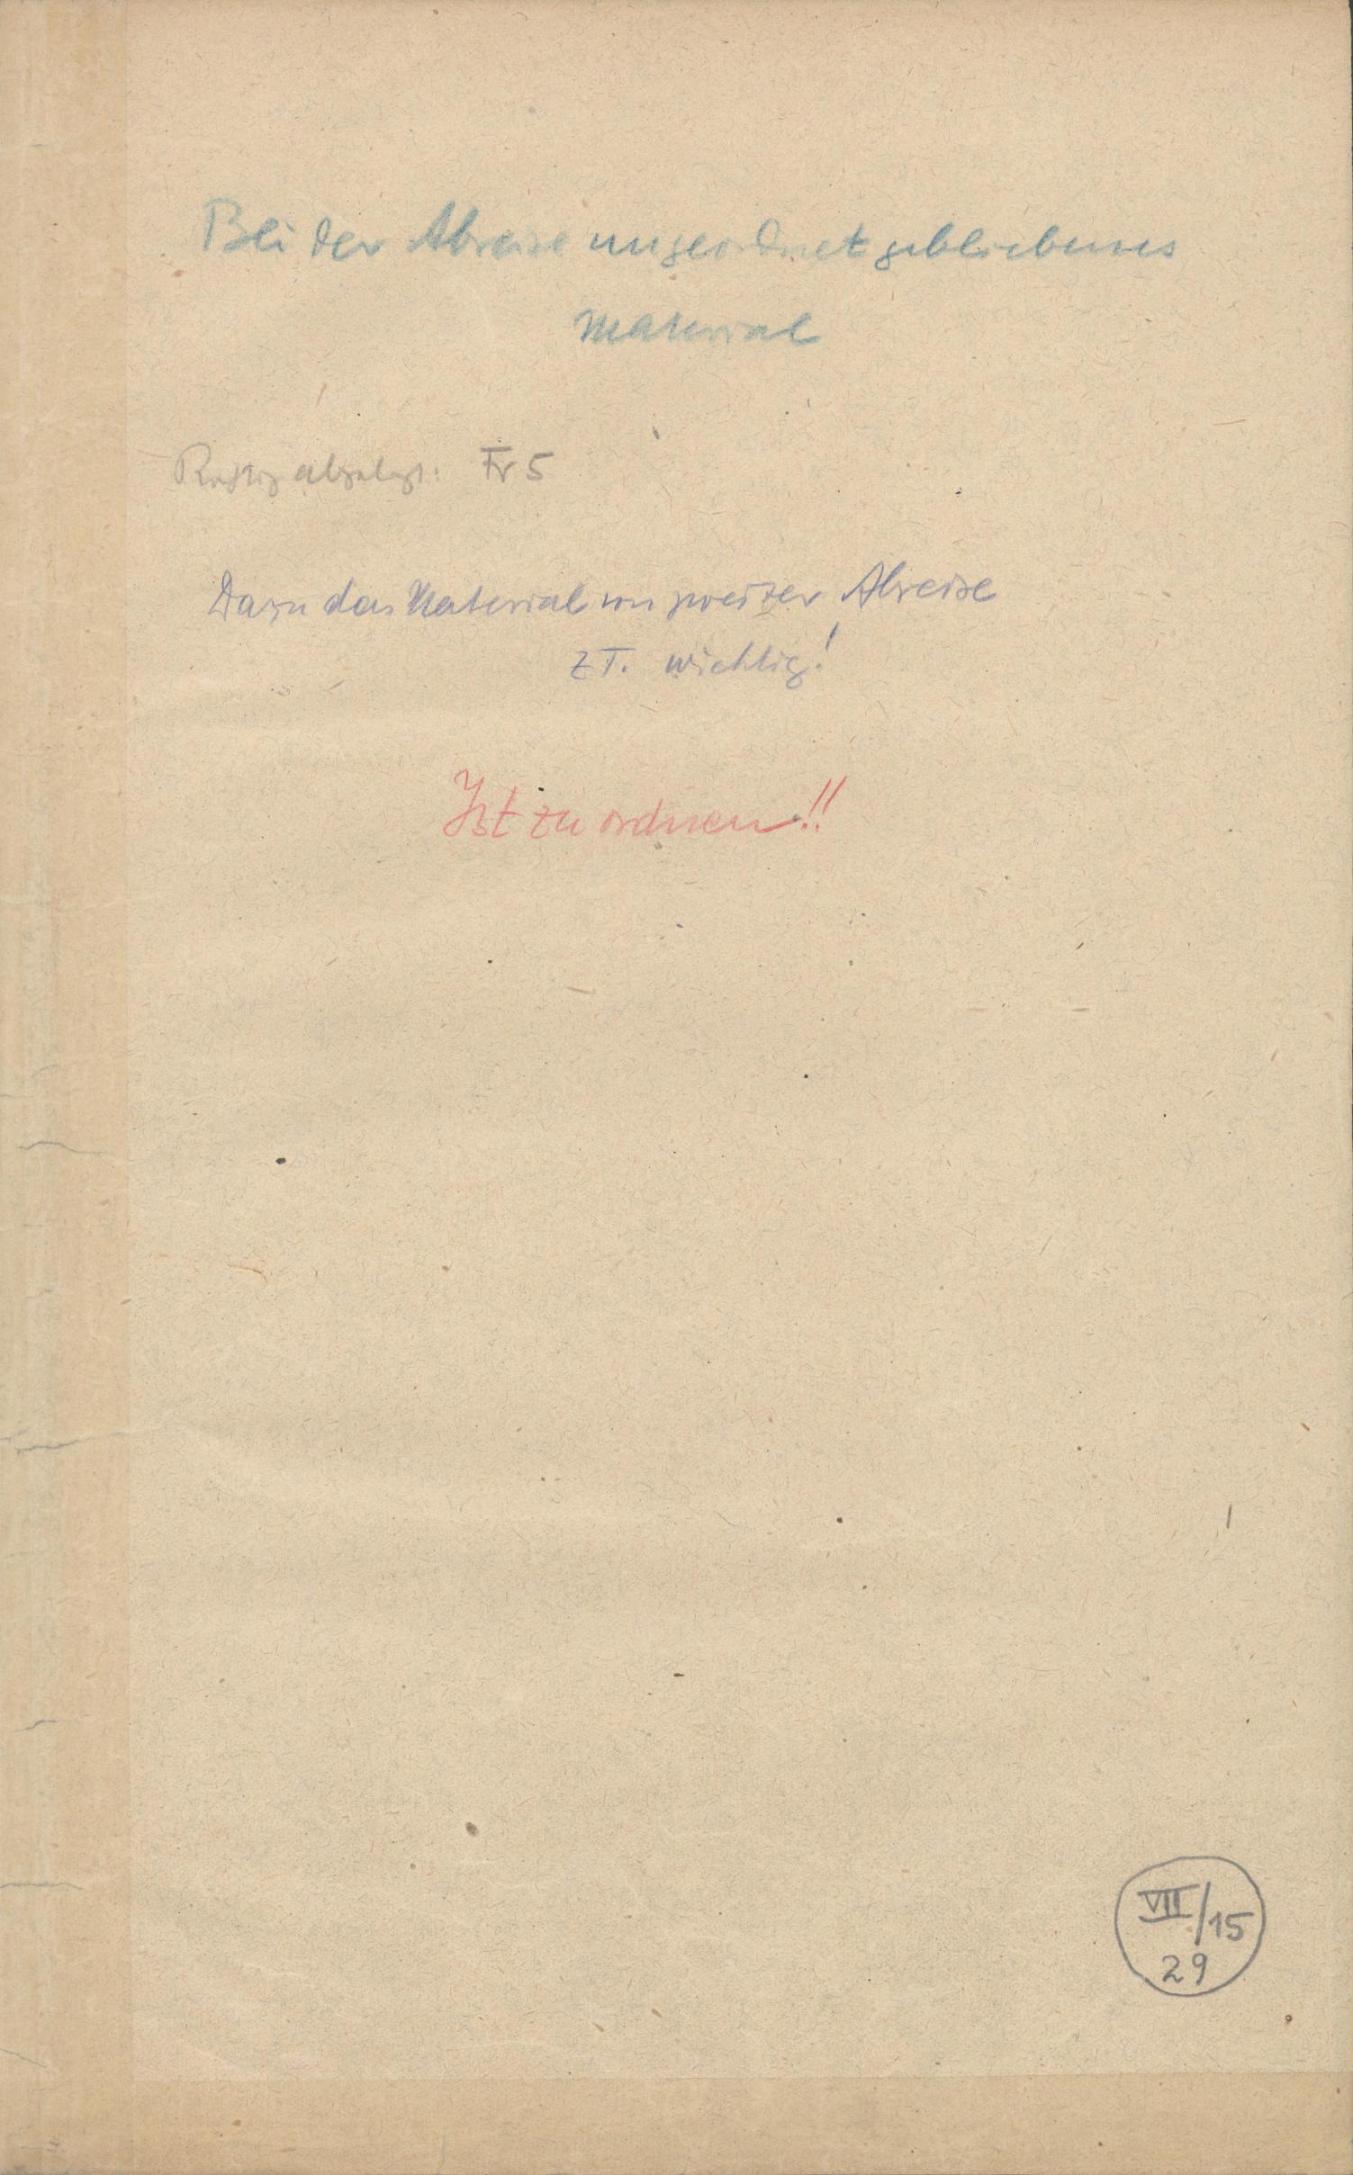 Bei der Abreise ungeordnet gebliebenes
Material
abgelegt: Fr 5
Dazu das Material von zweiter Abreise
z T. wichtig!
Ist zu ordnen!!
VII/15
29